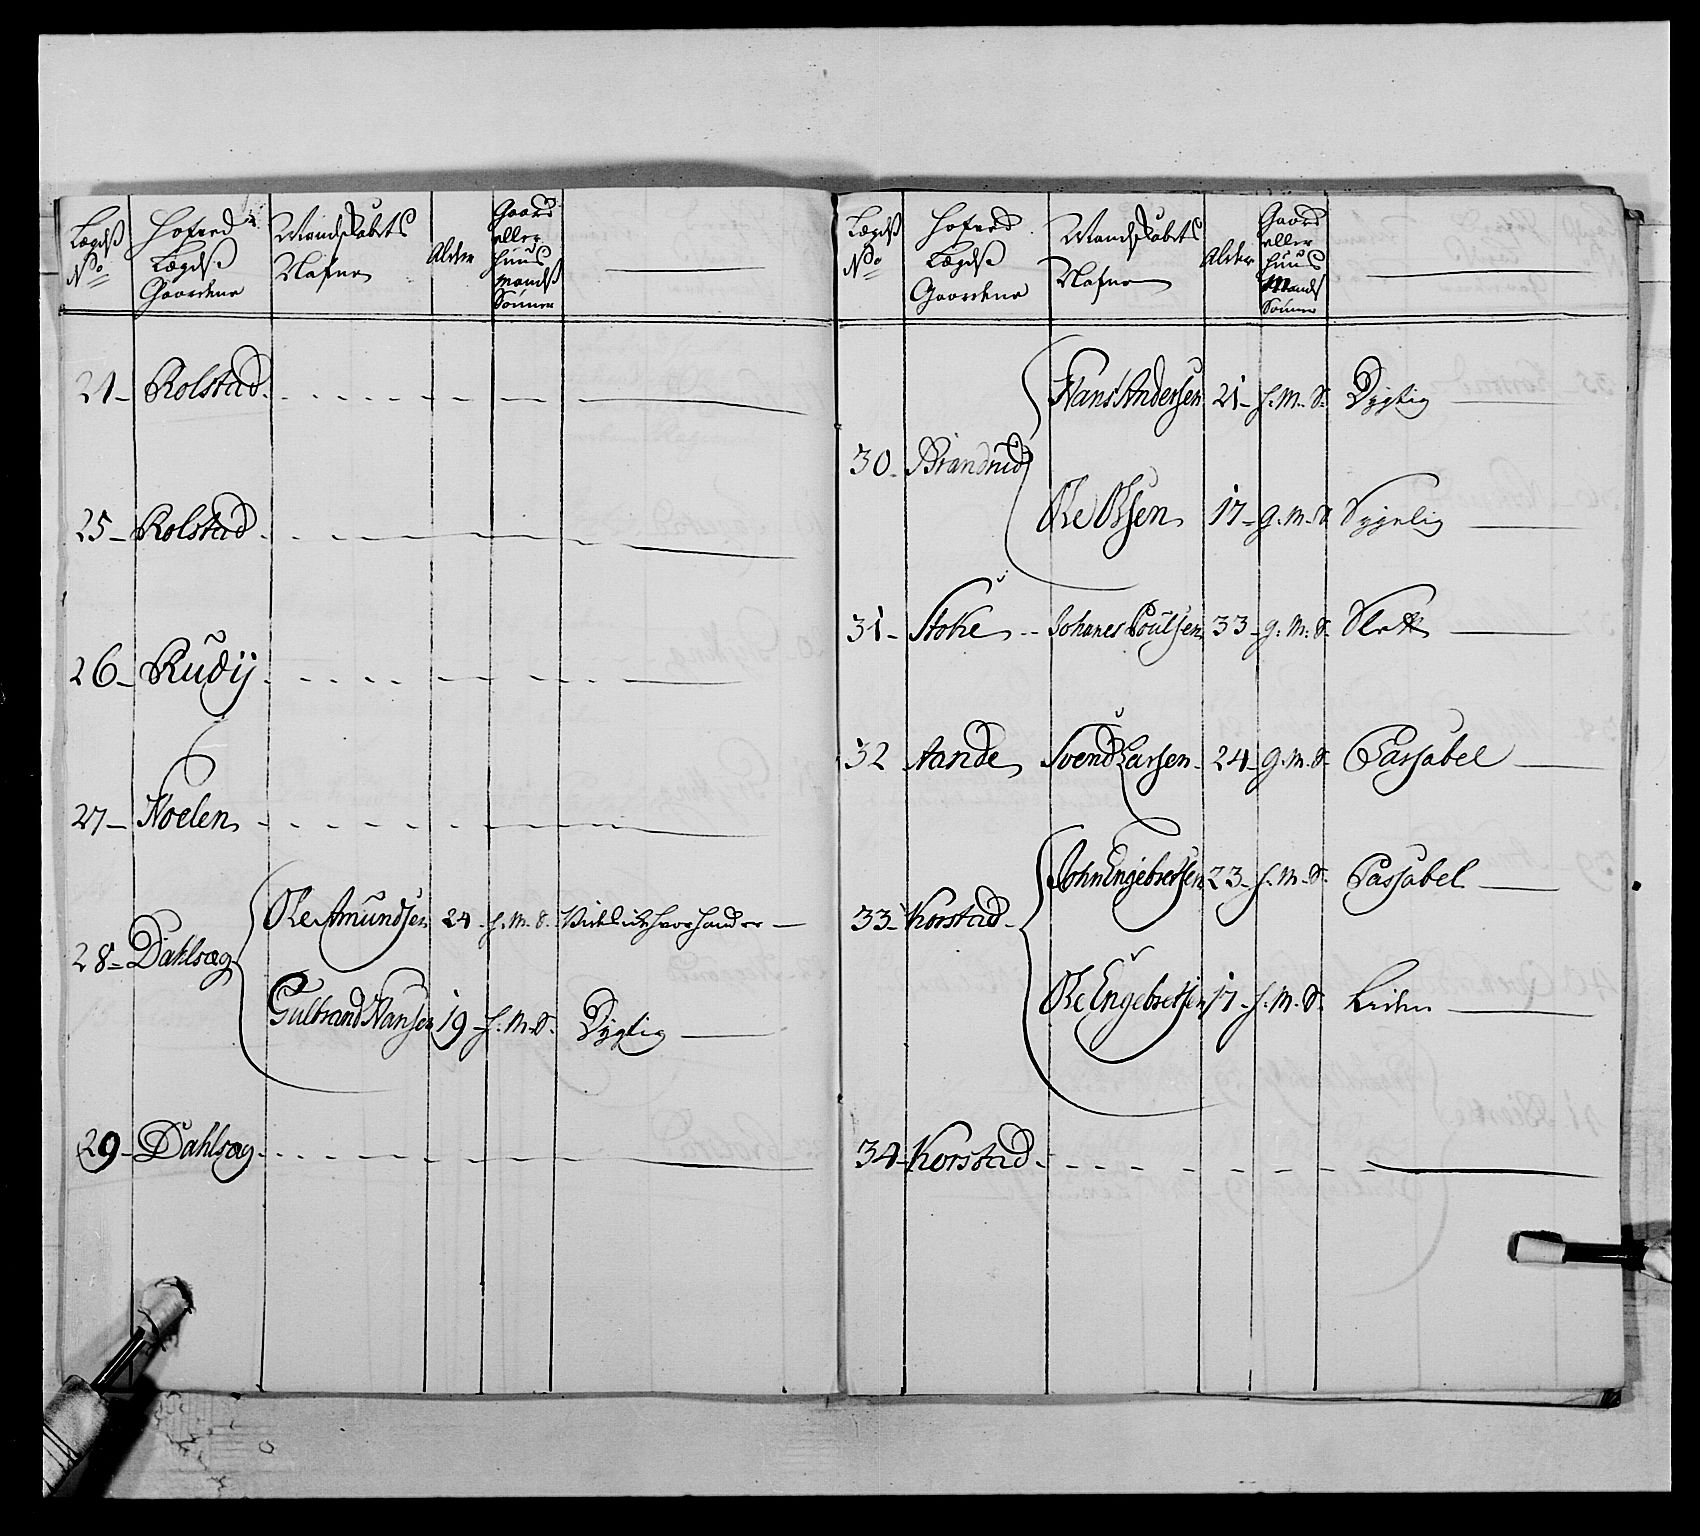 Lægds No
Hofved Lægds Gaardene
Mandskabets Nafne
Alder
Gaard eller Huus mands Sönner
24 - Rolstad
25 - Rolstad
26 - Rudij
27 - Noelen
28 - Dahlsæg
Ole Amundsen 24 - H. M. S.
Gulbrand Hansen 19 - H. M. S. Dygtig
29 - Dahlsæg
Lægds No
Hofved Lægds Gaardene
Mandskabets Nafne
Alder
Gaard eller Huus Mands Sönner
30 - Brandrud
Hans Andersen 21 - H. M. S. Dygtig
Ole Olsen 17 - G. M. S. Sygelig
31 - Stoke - - Johanes Poulsen 33 - G. M. S. Slet
32 Aande Svend Larsen - 24 - G. M. S. Passabel
33 - Korstad -
John Engebretsen 23 - H. M. S. Passabel
Ole Engebretsen 17 - H. M. S. Liden
34 - Korstad